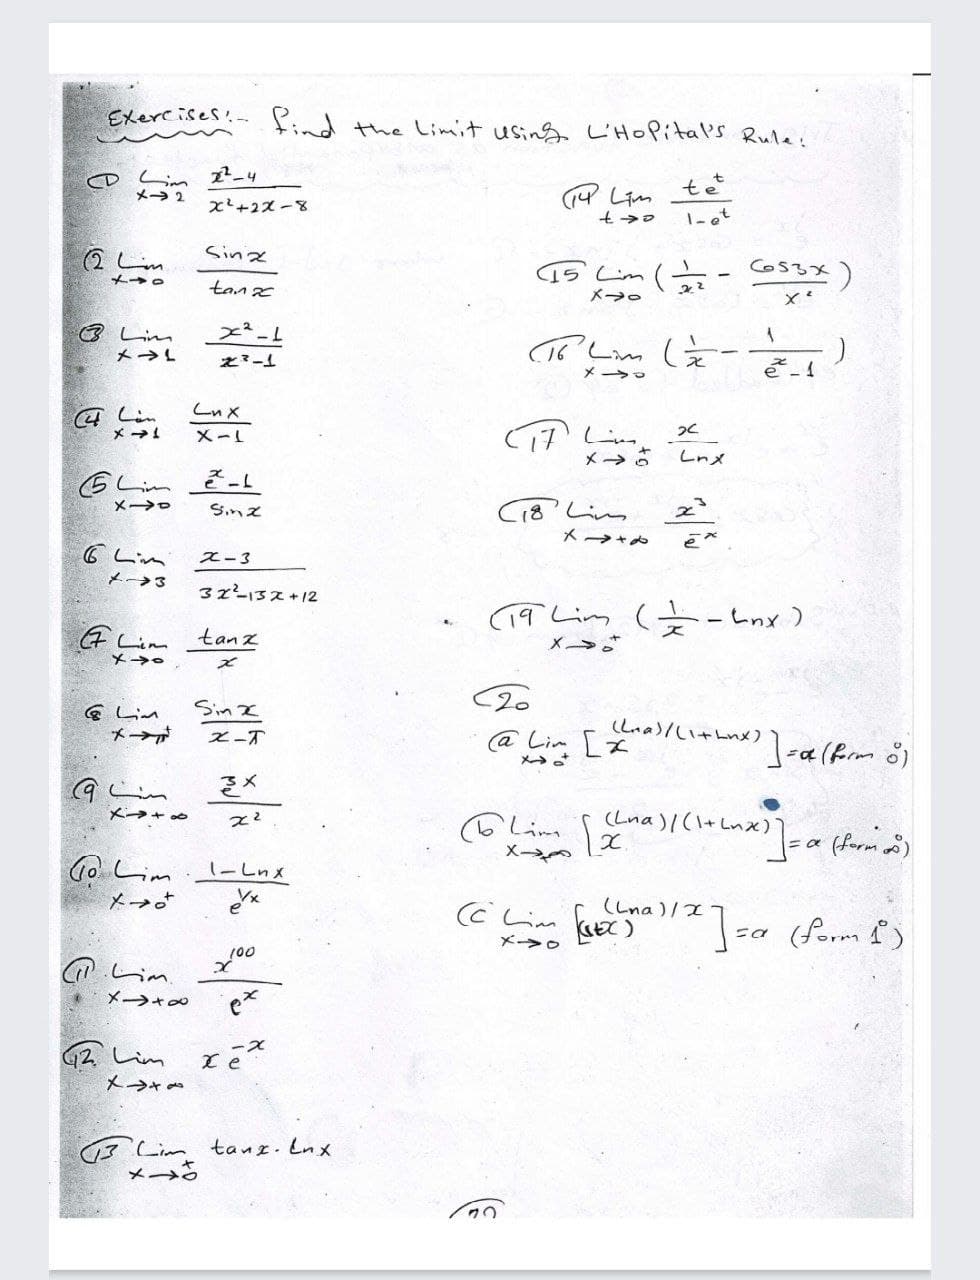 Exercises:- find the Limit using L'Hopital's Rule:
① Lim x→2 x²-4 / x²+2x-8
② Lim x→0 Sinx / tanx
③ Lim x→1 x²-1 / x³-1
④ Lim x→1 Lnx / x-1
⑤ Lim x→0 eˣ-1 / Sinx
⑥ Lim x→3 x-3 / 3x²-13x+12
⑦ Lim x→0 tanx / x
⑧ Lim x→π⁺ Sinx / x-π
⑨ Lim x→+∞ e³ˣ / x²
⑩ Lim x→0⁺ 1-Lnx / e^(1/x)
⑪ Lim x→+∞ x¹⁰⁰ / eˣ
⑫ Lim x→+∞ x e⁻ˣ
⑬ Lim x→0⁺ tanx. Lnx
⑭ Lim t→0 teᵗ / 1-eᵗ
⑮ Lim x→0 (1/x² - Cos3x/x²)
⑯ Lim x→0 (1/x - 1/eˣ-1)
⑰ Lim x→0⁺ x / Lnx
⑱ Lim x→+∞ x³ / e⁻ˣ
⑲ Lim x→0⁺ (1/x - Lnx)
⑳
ⓐ Lim x→0⁺ [x^(Lna)/(1+Lnx)] = a (form 0⁰)
ⓑ Lim x→+∞ [x^(Lna)/(1+Lnx)] = a (form ∞⁰)
ⓒ Lim x→0 [(1+x)^(Lna)/x] = a (form 1⁰)